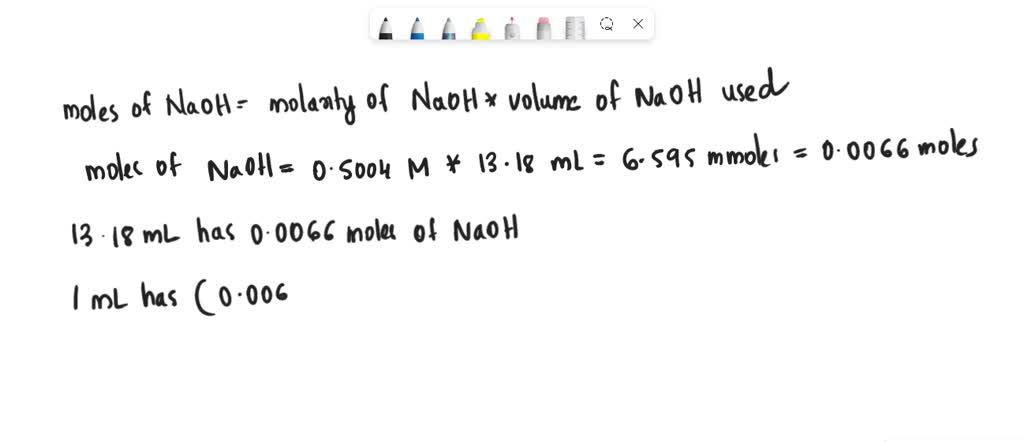 moles of NaOH = molarity of NaOH * volume of NaOH used
moles of NaOH = 0.5004 M * 13.18 mL = 6.595 mmoles = 0.0066 moles
13.18 mL has 0.0066 moles of NaOH
1 mL has (0.006